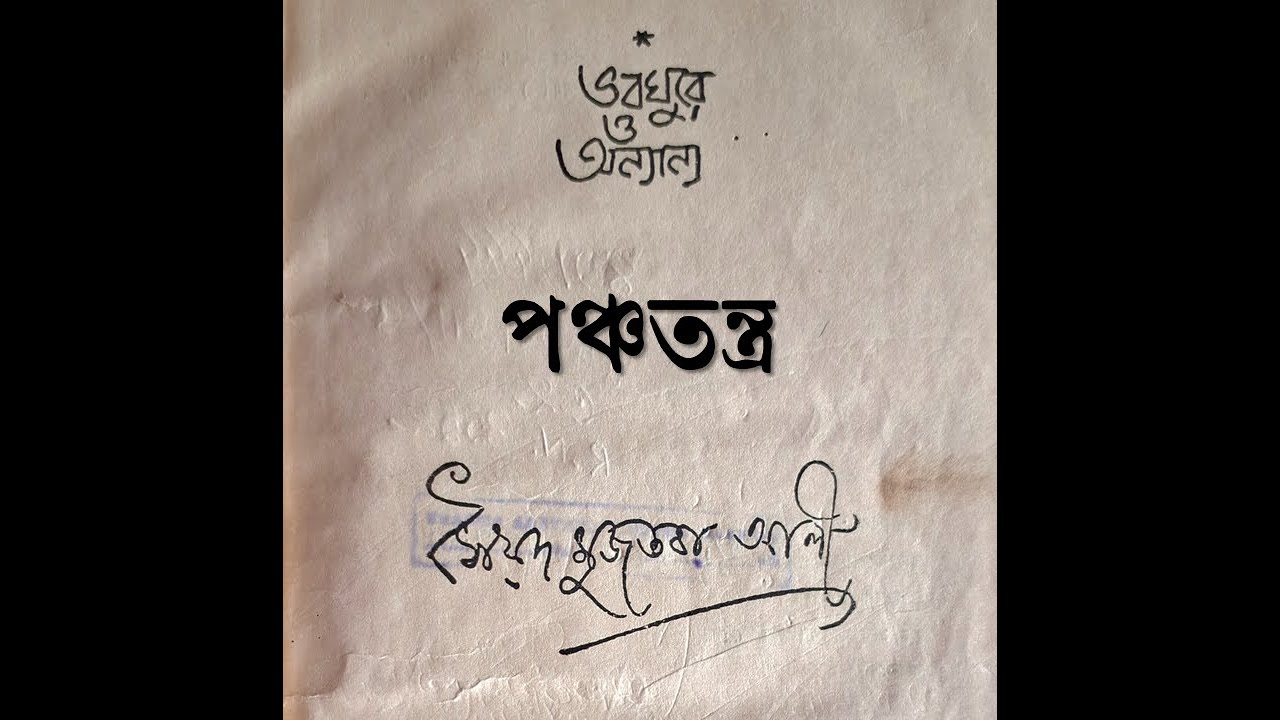 *
ভবঘুরে
ও
অন্যান্য
পঞ্চতন্ত্র
সৈয়দ মুজতবা আলী